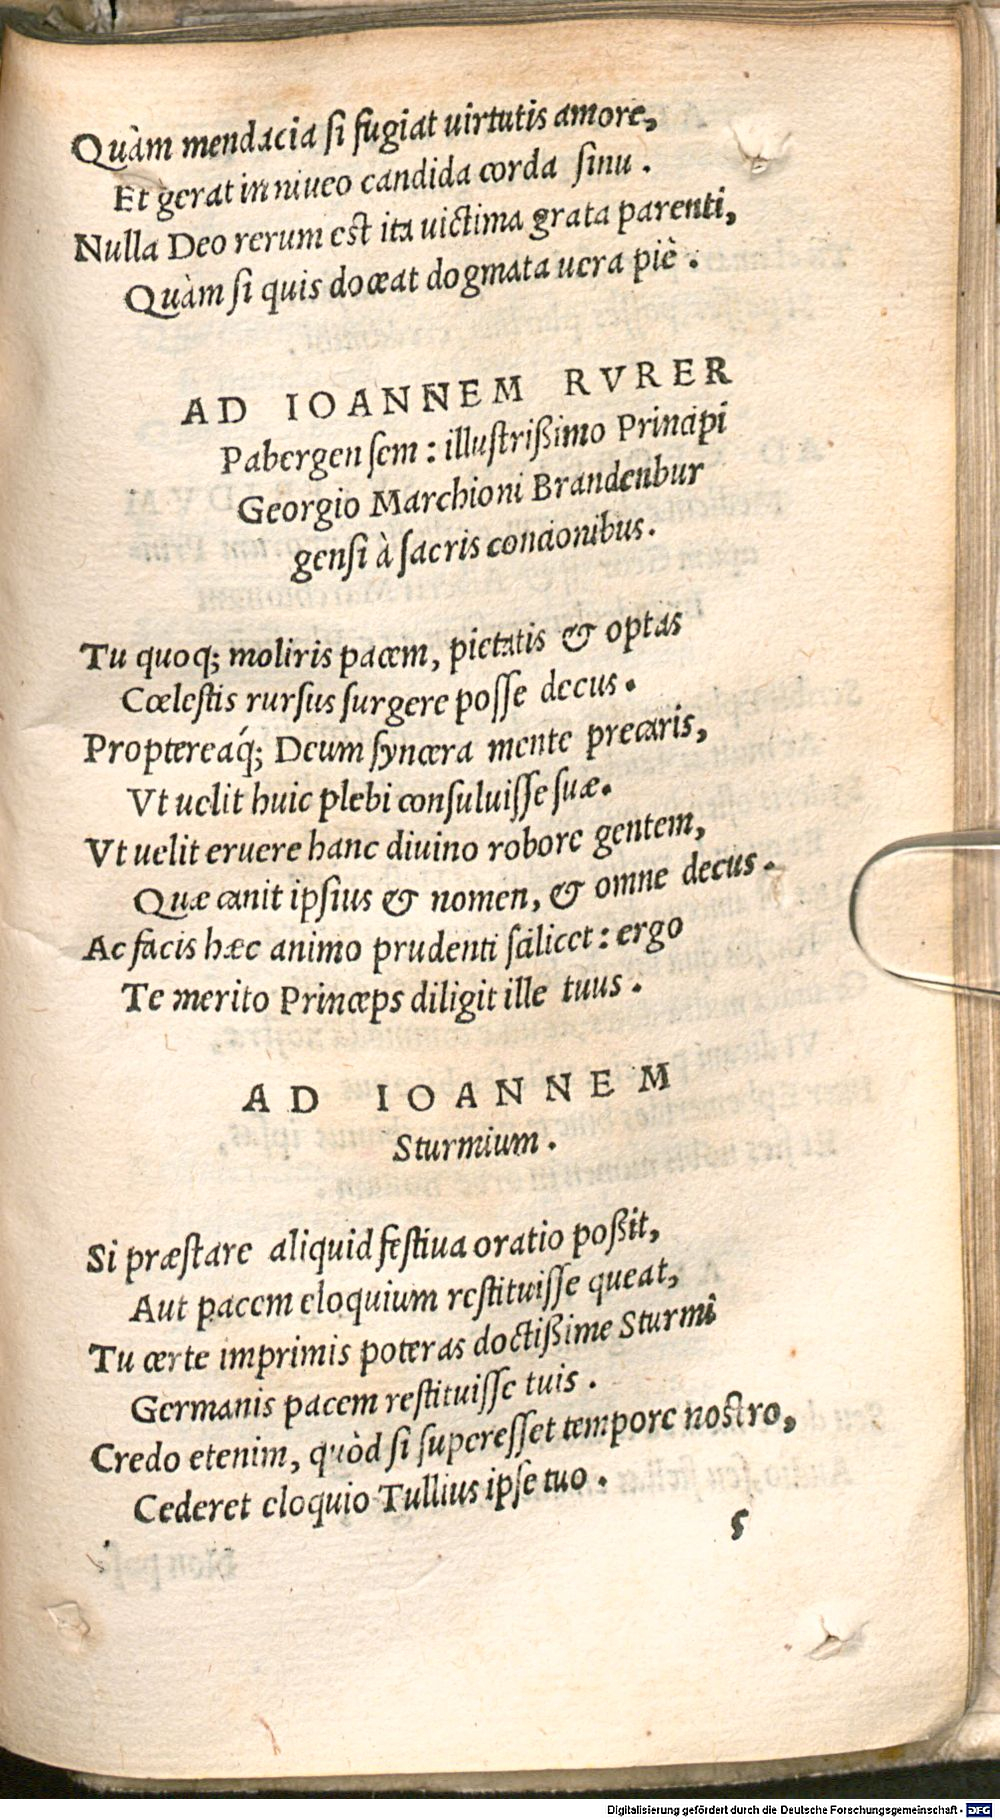 Quàm mendacia si fugiat uirtutis amore,
Et gerat in niueo candida corda sinu.
Nulla Deo rerum est ita uictima grata parenti,
Quàm si quis doceat dogmata uera piè.
AD IOANNEM RVRER
Pabergensem: illustrißimo Principi
Georgio Marchioni Brandenbur
gensi à sacris concionibus.
Tu quoq; moliris pacem, pietatis & optas
Cœlestis rursus surgere posse decus.
Proptereaq́; Deum syncera mente precaris,
Vt uelit huic plebi consuluisse suæ.
Vt uelit eruere hanc diuino robore gentem,
Quæ canit ipsius & nomen, & omne decus.
Ac facis hæc animo prudenti scilicet: ergo
Te merito Princeps diligit ille tuus.
AD IOANNEM
Sturmium.
Si præstare aliquid festiua oratio poßit,
Aut pacem eloquium restituisse queat,
Tu certe imprimis poteras doctißime Sturmi
Germanis pacem restituisse tuis.
Credo etenim, quòd si superesset tempore nostro,
Cederet eloquio Tullius ipse tuo.
s
Digitalisierung gefördert durch die Deutsche Forschungsgemeinschaft - DFG